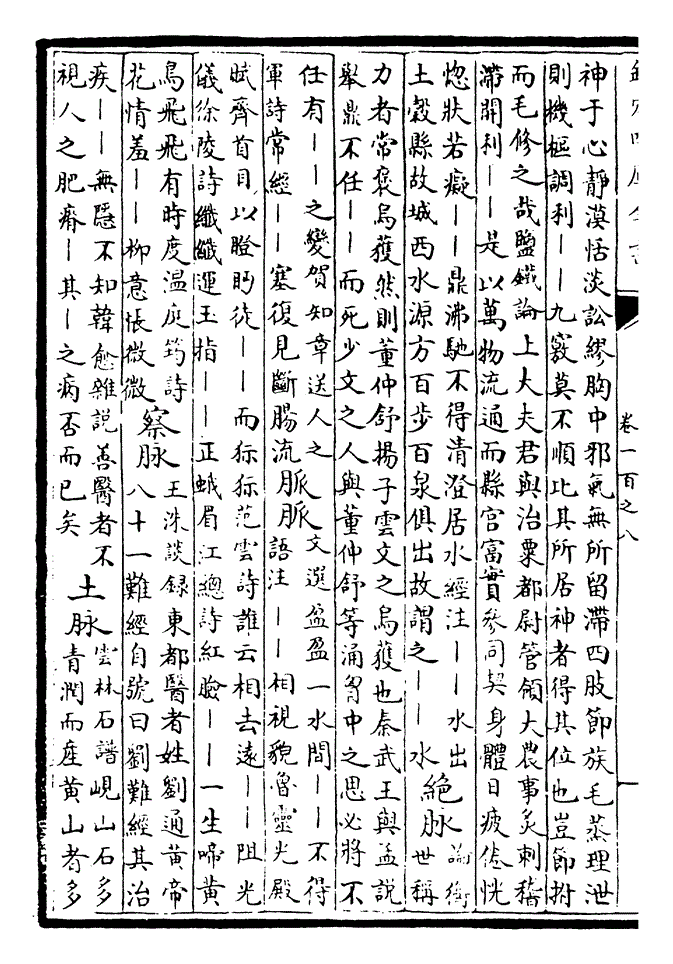 欽定四庫全書
卷一百之八
神于心靜漠恬淡訟繆胸中邪氣無所留滯四肢節族毛蒸理泄
則機樞調利——九竅莫不順比其所居神者得其位也豈節拊
而毛修之哉鹽鐵論上大夫君與治粟都尉管領大農事炙刺稽
滯開利——是以萬物流通而縣官富實參同契身體日疲倦恍
惚狀若癡——鼎沸馳不得清澄居水經注——水出
土穀縣故城西水源方百步百泉俱出故謂之——水
絕脉
論衡
世稱
力者常褒烏獲然則董仲舒揚子雲文之烏獲也秦武王與孟說
舉鼎不任——而死少文之人與董仲舒等涌胷中之思必將不
任有——之變賀知章送人之
軍詩常經——塞復見斷腸流
脈脈
文選盈盈一水間——不得
語注——相視貌魯靈光殿
賦齊首目以瞪眄徒——而狋狋范雲詩誰云相去遠——阻光
儀徐陵詩纖纖運玉指——正蛾眉江總詩紅臉——一生啼黃
鳥飛飛有時度温庭筠詩
花情羞——柳意悵微微
察脉
王洙談録東都醫者姓劉通黄帝
八十一難經自號曰劉難經其治
疾——無隱不知韓愈雜說善醫者不
視人之肥瘠—其—之病否而已矣
土脉
雲林石譜峴山石多
青潤而産黄山者多